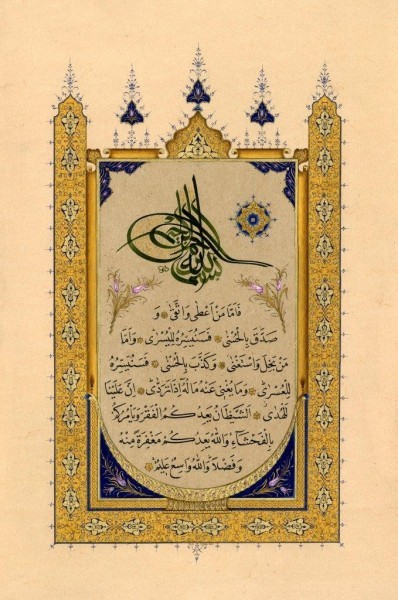 بسم الله الرحمن الرحيم
فَأَمَّا مَنْ أَعْطَى وَاتَّقَى وَ
صَدَّقَ بِالْحُسْنَى فَسَنُيَسِّرُهُ لِلْيُسْرَى وَأَمَّا
مَنْ بَخِلَ وَاسْتَغْنَى وَكَذَّبَ بِالْحُسْنَى فَسَنُيَسِّرُهُ
لِلْعُسْرَى وَمَا يُغْنِي عَنْهُ مَالُهُ إِذَا تَرَدَّى إِنَّ عَلَيْنَا
لَلْهُدَى الشَّيْطَانُ يَعِدُكُمُ الْفَقْرَ وَيَأْمُرُكُمْ
بِالْفَحْشَاءِ وَاللَّهُ يَعِدُكُمْ مَغْفِرَةً مِنْهُ
وَفَضْلًا وَاللَّهُ وَاسِعٌ عَلِيمٌ